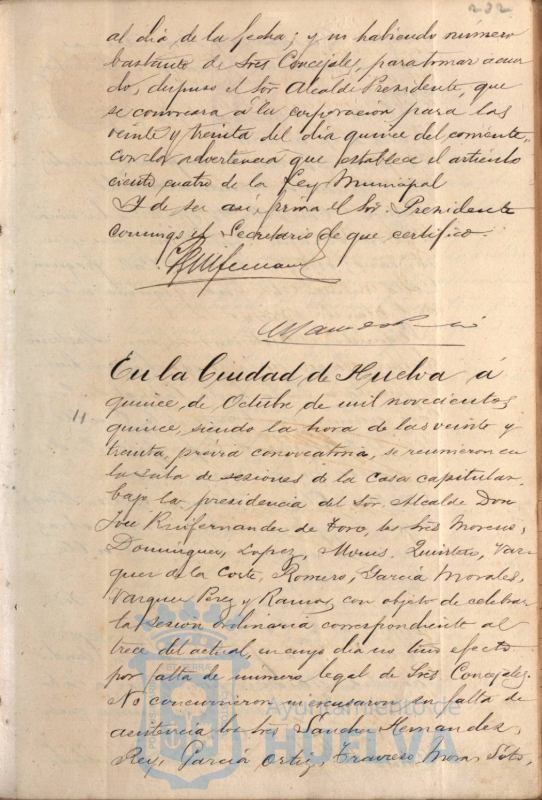 232
al dia de la fecha; y no habiendo número
bastante de Sres Concejales, para tomar acuer
do, dispuso el Sor Alcalde Presidente, que
se convocara á la corporación para las
veinte y treinta del dia quince del corriente,
con la advertencia que establece el artículo
ciento cuatro de la Ley Municipal
Y de ser asi, firma el Sor. Presidente
conmigo el Secretario de que certifico.
En la Ciudad de Huelva á
11
quince de Octubre de mil novecientos
quince, siendo la hora de las veinte y
treinta, prévia convocatoria, se reunieron en
la sala de sesiones de la casa capitular
bajo la presidencia del Sor. Alcalde Don
José Ruifernandez de Toro, los Sres Moreno,
Dominguez, Lopez, Monis, Quintero, Vaz
quez de la Corte, Romero, García Morales,
Vazquez Perez y Ramos, con objeto de celebrar
la sesión ordinaria correspondiente al
trece del actual, en cuyo dia no tuvo efecto
por falta de número legal de Sres Concejales.
No concurrieron ni excusaron su falta de
asistencia los Sres Sanchez Hernandez,
Rey, García Ortiz, Travieso, Mora, Soto,
Ayuntamiento de
HUELVA